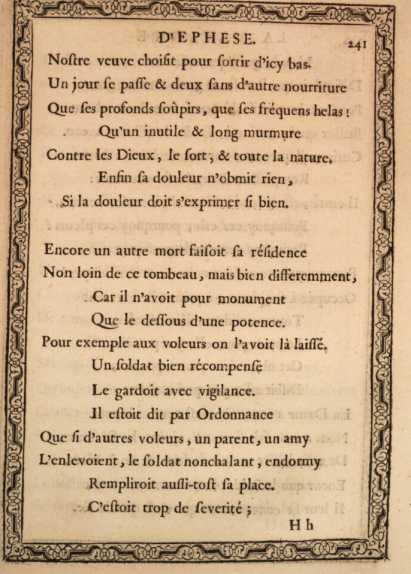 D'EPHESE. 241
Noſtre veuve choiſit pour ſortir d'icy bas.
Un jour ſe paſſe & deux ſans d'autre nourriture
Que ſes profonds ſoûpirs, que ſes fréquens helas:
Qu'un inutile & long murmure
Contre les Dieux, le ſort, & toute la nature.
Enfin ſa douleur n'obmit rien,
Si la douleur doit s'exprimer ſi bien.
Encore un autre mort faiſoit ſa réſidence
Non loin de ce tombeau, mais bien differemment,
Car il n'avoit pour monument
Que le deſſous d'une potence.
Pour exemple aux voleurs on l'avoit là laiſſé.
Un ſoldat bien récompenſé
Le gardoit avec vigilance.
Il eſtoit dit par Ordonnance
Que ſi d'autres voleurs, un parent, un amy
L'enlevoient, le ſoldat nonchalant, endormy
Rempliroit auſſi-toſt ſa place.
C'eſtoit trop de ſeverité;
H h